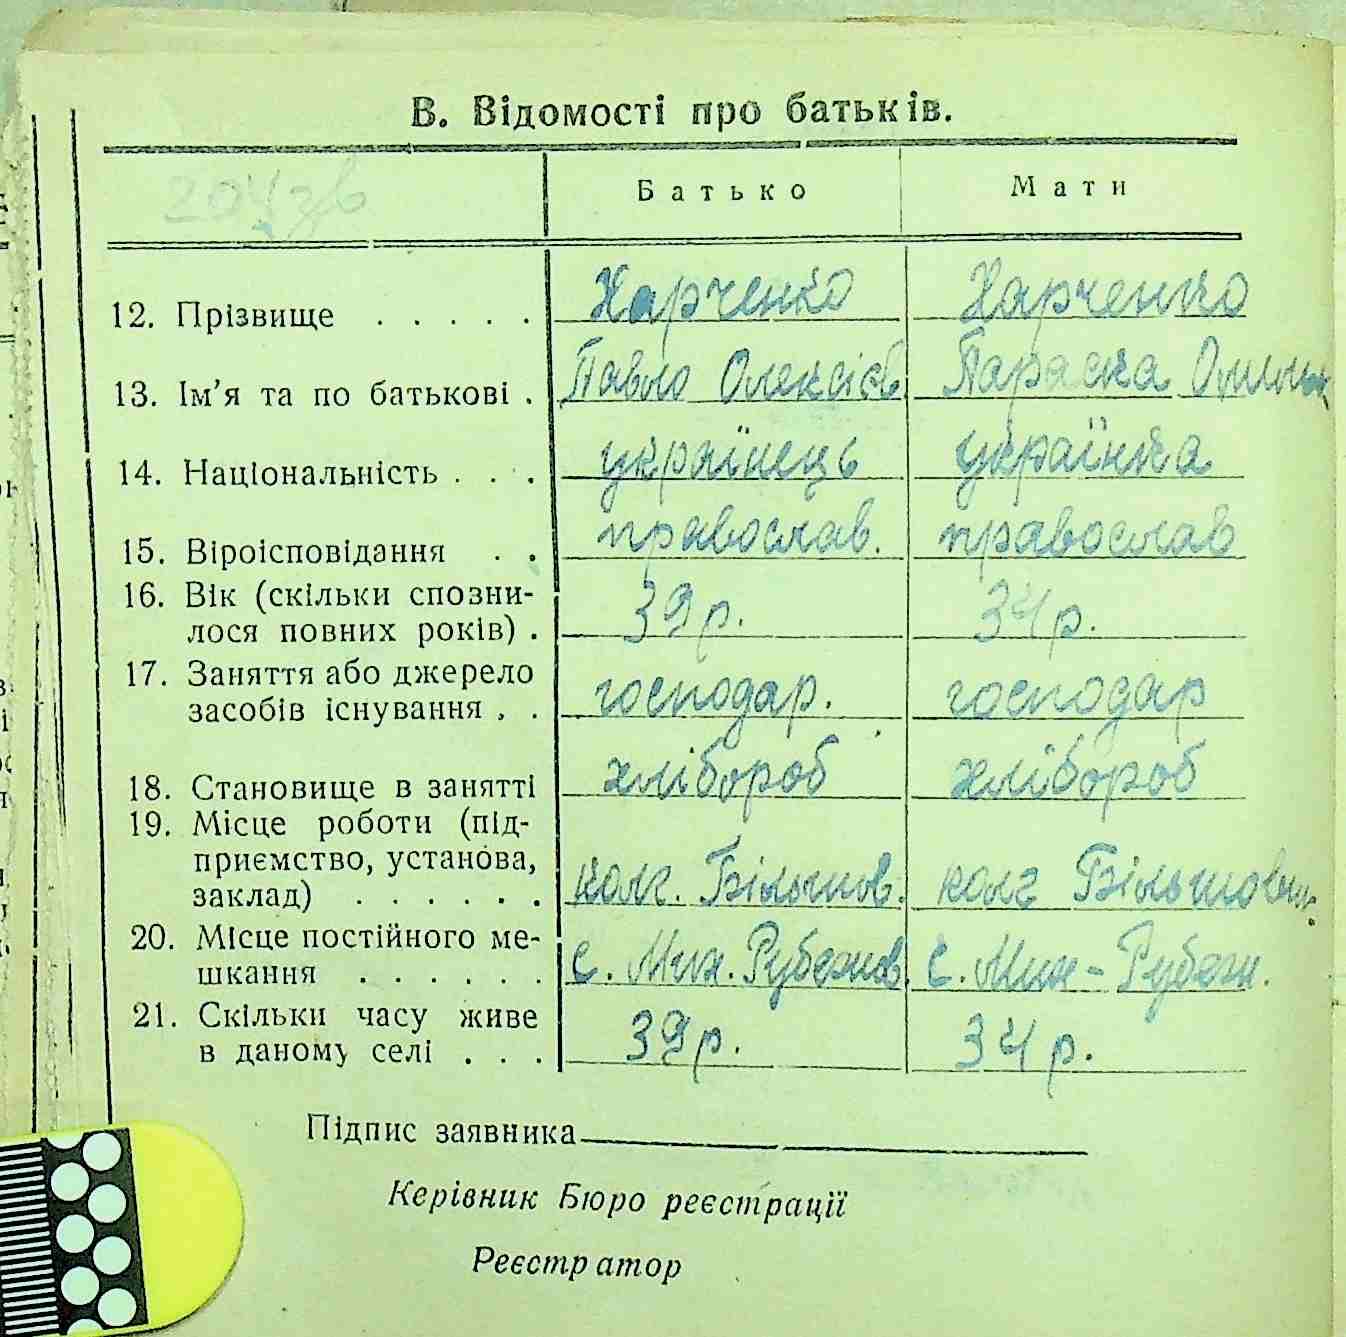 В. Відомості про батьків.
Батько Мати
12. Прізвище . . . . . Харченко Харченко
13. Ім'я та по батькові . Павло Олексієв Параска
14. Національність . . . українець українка
15. Віроісповідання . . православ. православ
16. Вік (скільки спозни-
лося повних років) . 39 р. 34 р.
17. Заняття або джерело
засобів існування . . господар. господар
18. Становище в занятті хлібороб хлібороб
19. Місце роботи (під-
приємство, установа,
заклад) . . . . . . колг. Більшов. колг Більшовик
20. Місце постійного ме-
шкання . . . . . . с. Мик. Рубежов. с. Мик-Рубеж.
21. Скільки часу живе
в даному селі . . . 39 р. 34 р.
Підпис заявника
Керівник Бюро реєстрації
Реєстратор